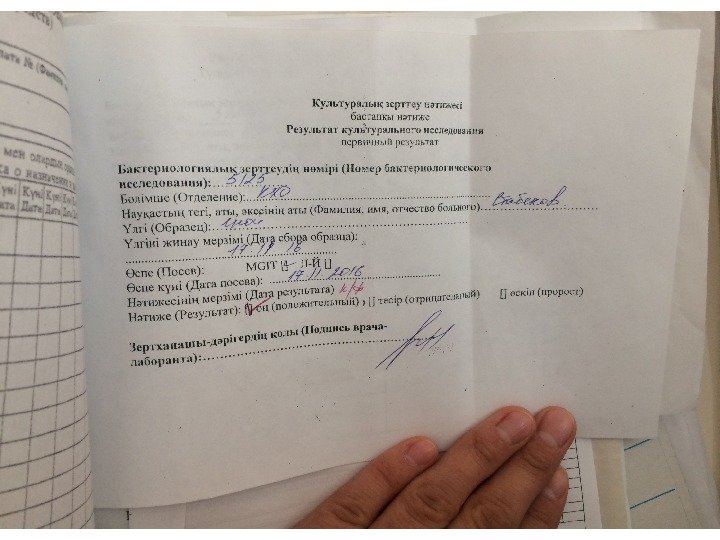 ната № (Фамилия
мен олардың
ка о назначении
үні Күні Күні Күні
ата Дата Дата Дата
Культуралық зерттеу нәтижесі
бастапқы нәтиже
Результат культурального исследования
первичный результат
Бактериологиялық зерттеудің нөмірі (Номер бактериологического
исследования): 5125
Бөлімше (Отделение): КХО
Науқастың тегі, аты, әкесінің аты (Фамилия, имя, отчество больного)
Үлгі (Образец):
Үлгіні жинау мерзімі (Дата сбора образца):
17 11 16
Өспе (Посев): MGIT [] Л-Й []
Өспе күні (Дата посева): 17 11 2016
Нәтижесінің мерзімі (Дата результата) к/ф
Нәтиже (Результат): [] оң (положительный) , [] теріс (отрицательный) [] өскін (пророст)
Зертханашы-дәрігердің қолы (Подпись врача-
лаборанта):